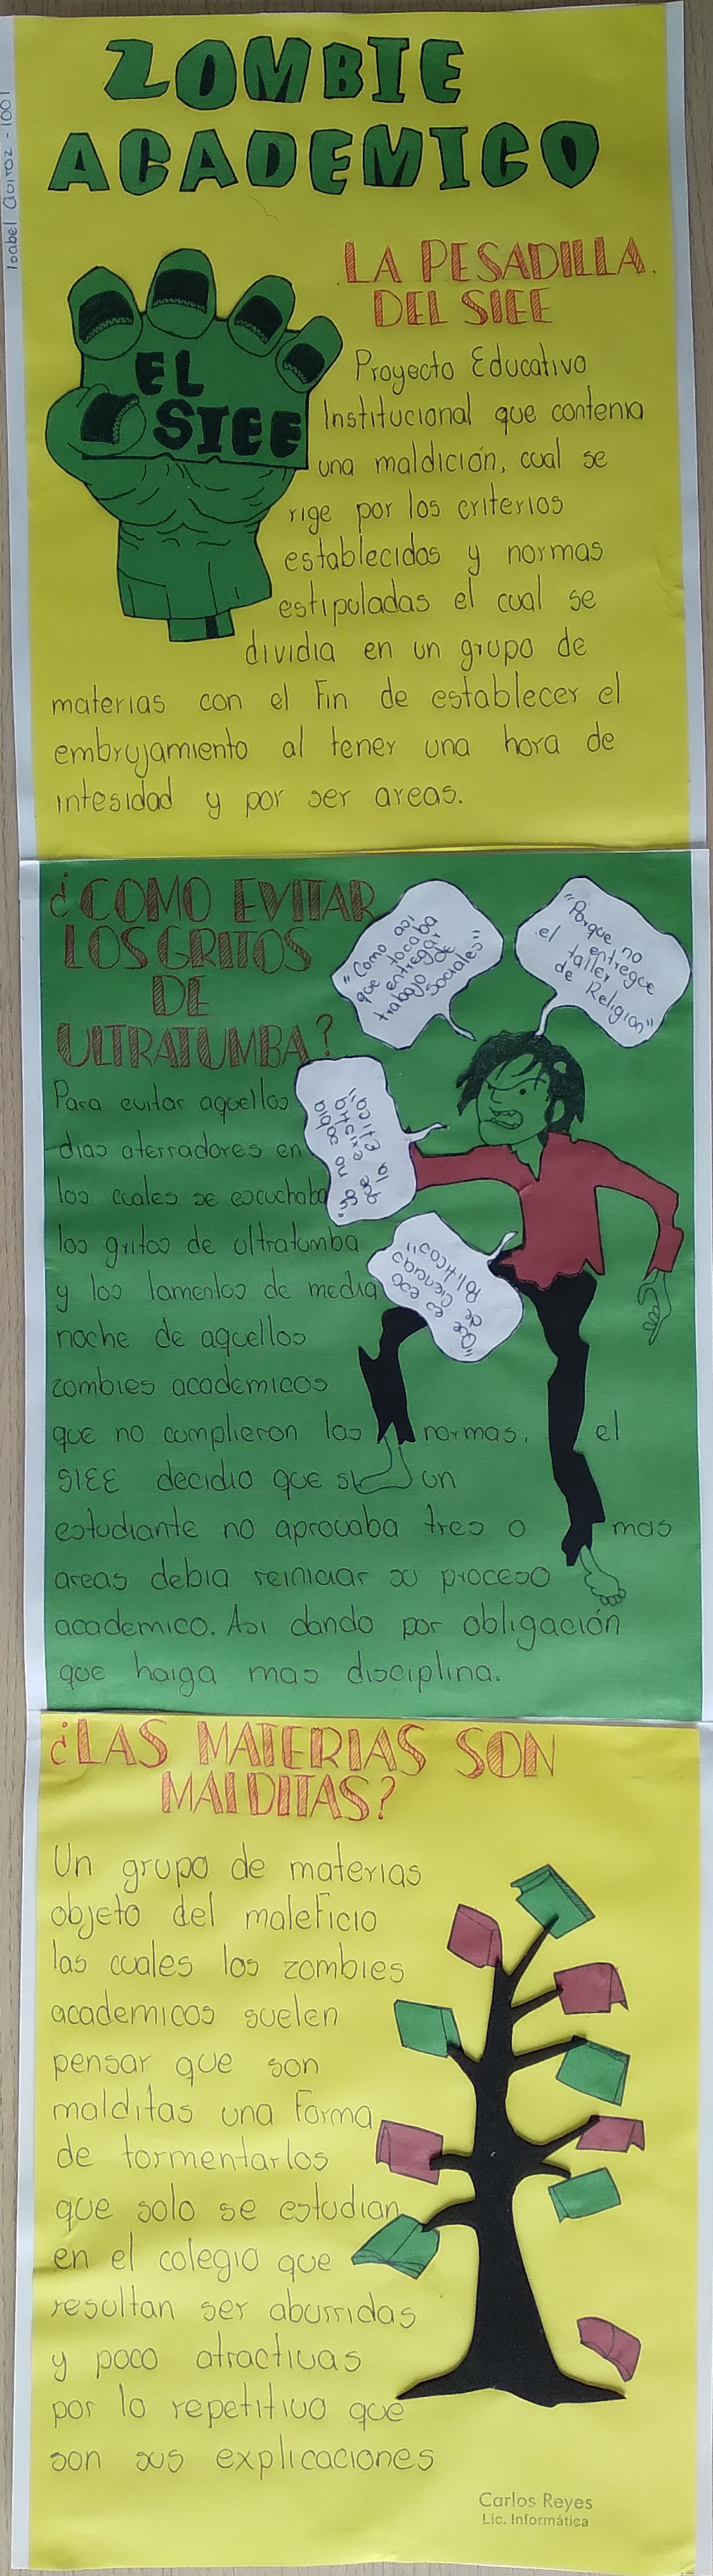 Isabel Quiroz - 1001
ZOMBIE
ACADEMICO
LA PESADILLA
DEL SIEE
EL
SIEE
Proyecto Educativo
Institucional que contenia
una maldición, cual se
rige por los criterios
establecidos y normas
estipuladas el cual se
dividia en un grupo de
materias con el Fin de establecer el
embrujamiento al tener una hora de
intesidad y por ser areas.
¿COMO EVITAR
LOS GRITOS
DE
ULTRATUMBA?
"Como asi
que tocaba
entregar
trabajo de
sociales"
"Porque no
entregue
el taller
de Religion"
"Yo no sabia
que existia
la Etica"
"Que es eso
de ciencias
Politicas"
Para evitar aquellos
dias aterradores en
los cuales se escuchaba
los gritos de ultratumba
y los lamentos de media
noche de aquellos
zombies academicos
que no complieron las normas, el
SIEE decidio que si un
estudiante no aprovaba tres o mas
areas debia reiniciar su proceso
academico. Asi dando por obligación
que haiga mas disciplina.
¿LAS MATERIAS SON
MALDITAS?
Un grupo de materias
objeto del maleficio
las cuales los zombies
academicos suelen
pensar que son
malditas una Forma
de tormentarlos
que solo se estudian
en el colegio que
resultan ser aburridas
y poco atractivas
por lo repetitivo que
son sus explicaciones
Carlos Reyes
Lic. Informática